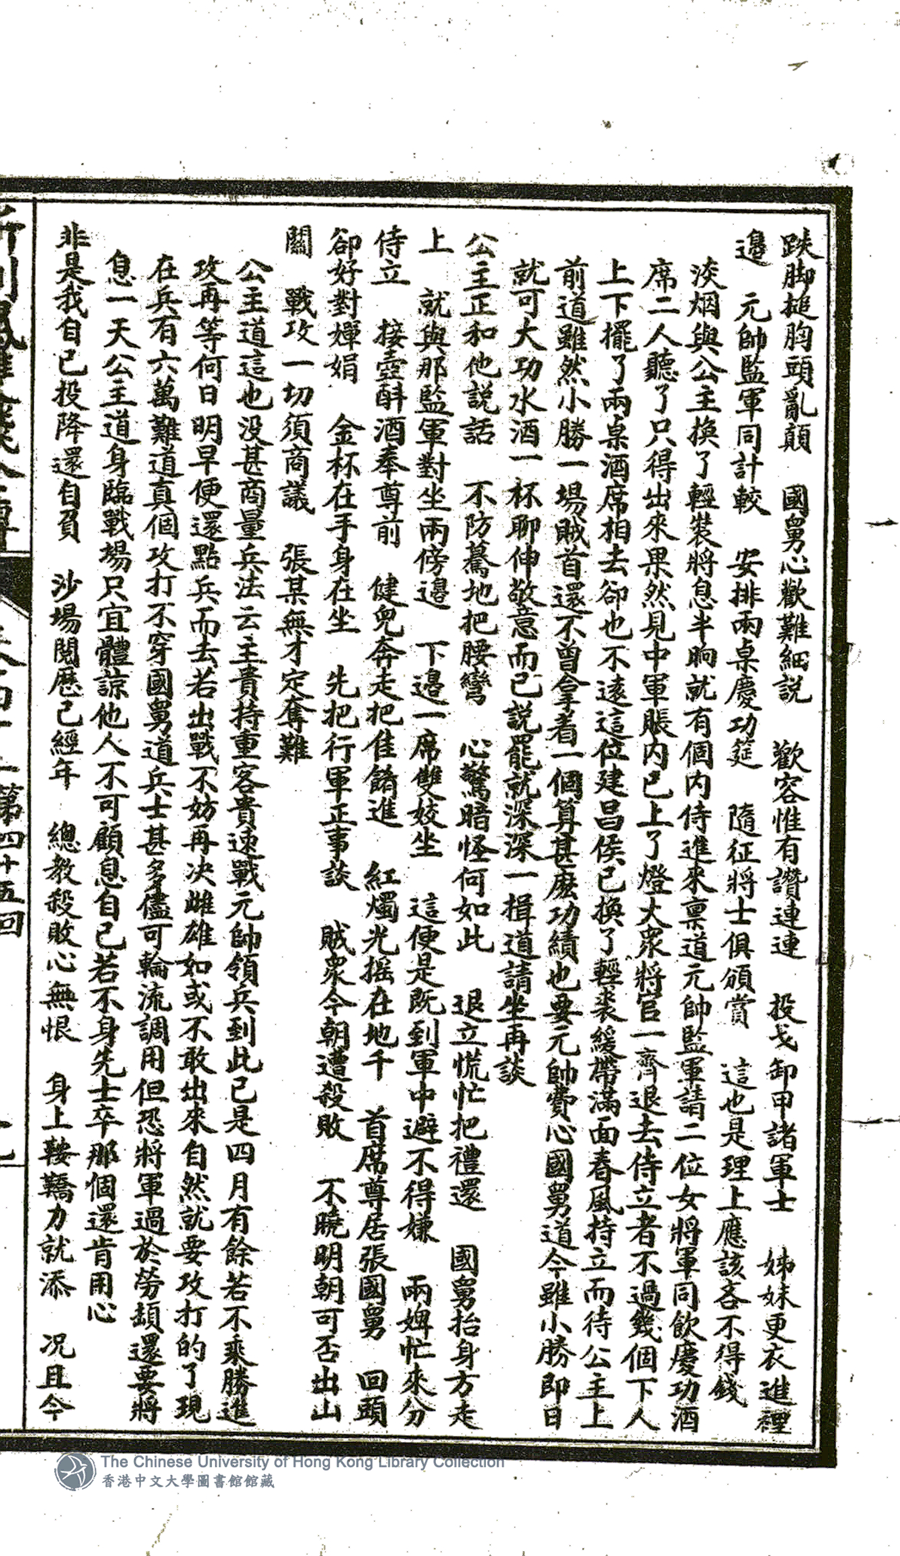 跌脚搥胸頭亂顛　國舅心歡難細説　歡容惟有讚連連　投戈卸甲諸軍士　姊妹更衣進裡
邊　元帥監軍同計較　安排兩桌慶功筵　隨征將士俱頒賞　這也是理上應該吝不得錢
淡烟與公主換了輕裝將息半晌就有個内侍進來禀道元帥監軍請二位女將軍同飲慶功酒
席二人聽了只得出來果然見中軍賬内已上了燈大衆將官一齊退去侍立者不過幾個下人
上下擺了兩桌酒席相去卻也不遠這位建昌侯已換了輕裘緩帶滿面春風持立而待公主上
前道雖然小勝一場賊首還不曾拿着一個算甚麽功績也要元帥費心國舅道今雖小勝即日
就可大功水酒一杯聊伸敬意而已説罷就深深一揖道請坐再談
公主正和他説話　不防驀地把腰彎　心驚暗怪何如此　退立慌忙把禮還　國舅抬身方走
上　就與那監軍對坐兩傍邊　下邊一席雙姣坐　這便是既到軍中避不得嫌　兩婢忙來分
侍立　接壺酙酒奉尊前　健兒奔走把佳餚進　紅燭光摇在地千　首席尊居張國舅　回頭
卻好對嬋娟　金杯在手身在坐　先把行軍正事談　賊衆今朝遭殺敗　不曉明朝可否出山
關　戰攻一切須商議　張某無才定奪難
公主道這也没甚商量兵法云主貴持重客貴速戰元帥領兵到此已是四月有餘若不乘勝進
攻再等何日明早便還點兵而去若出戰不妨再决雌雄如或不敢出來自然就要攻打的了現
在兵有六萬難道真個攻打不穿國舅道兵士甚多儘可輪流調用但恐將軍過於勞頡還要將
息一天公主道身臨戰場只宜體諒他人不可顧息自己若不身先士卒那個還肯用心
非是我自已投降還自負　沙場閲歷已經年　總教殺敗心無恨　身上鞍鞽力就添　况且今
第四十五回
The Chinese University of Hong Kong Library Collection
香港中文大學圖書館館藏